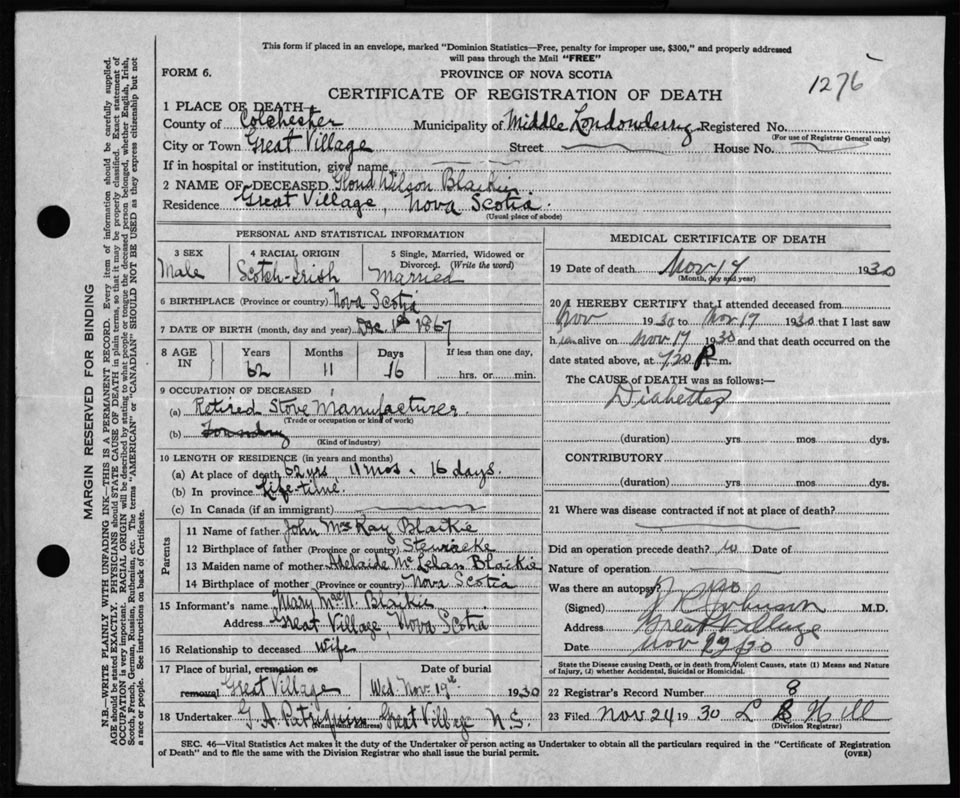 This form if placed in an envelope, marked "Dominion Statistics—Free, penalty for improper use, $300," and properly addressed
will pass through the Mail "FREE"
1276
FORM 6.
PROVINCE OF NOVA SCOTIA
CERTIFICATE OF REGISTRATION OF DEATH
1 PLACE OF DEATH—
County of Colchester Municipality of Middle Londonderry Registered No.
(For use of Registrar General only)
City or Town Great Village Street House No.
If in hospital or institution, give name
2 NAME OF DECEASED Wilson Blaikie
Residence Great Village, Nova Scotia.
(Usual place of abode)
PERSONAL AND STATISTICAL INFORMATION
3 SEX 4 RACIAL ORIGIN 5 Single, Married, Widowed or
Divorced. (Write the word)
Male Scotch-Irish Married
6 BIRTHPLACE (Province or country) Nova Scotia
7 DATE OF BIRTH (month, day and year) Dec 1st 1867
8 AGE IN Years Months Days If less than one day,
62 11 16 hrs. or min.
9 OCCUPATION OF DECEASED
(a) Retired Stove Manufacturer
(Trade or occupation or kind of work)
(b) Foundry
(Kind of industry)
10 LENGTH OF RESIDENCE (in years and months)
(a) At place of death 62 yrs 11 mos. 16 days.
(b) In province Life-time
(c) In Canada (if an immigrant)
Parents
11 Name of father John McKay Blaikie
12 Birthplace of father (Province or country) Stewiacke
13 Maiden name of mother Adelaide McLelan Blaikie
14 Birthplace of mother (Province or country) Nova Scotia
15 Informant's name Mary MacN. Blaikie
Address Great Village, Nova Scotia
16 Relationship to deceased Wife
17 Place of burial, cremation or removal Great Village Date of burial Wed. Nov. 19th 1930
18 Undertaker G. A. Patriquin Great Village N.S.
(Name and Address)
MEDICAL CERTIFICATE OF DEATH
19 Date of death Nov 17 1930
(Month, day and year)
20 I HEREBY CERTIFY that I attended deceased from
Nov 1930 to Nov 17 1930 that I last saw
h im alive on Nov 17 1930 and that death occurred on the
date stated above, at 7.20 P. m.
The CAUSE of DEATH was as follows:—
Diabetes
(duration) yrs mos dys.
CONTRIBUTORY
(duration) yrs mos dys.
21 Where was disease contracted if not at place of death?
Did an operation precede death? no Date of
Nature of operation
Was there an autopsy? no
(Signed) Johnson M.D.
Address Great Village
Date Nov 30
State the Disease causing Death, or in death from Violent Causes, state (1) Means and Nature
of Injury, (2) whether Accidental, Suicidal or Homicidal.
22 Registrar's Record Number 8
23 Filed Nov 24 1930 L B Hill
(Division Registrar)
SEC. 46—Vital Statistics Act makes it the duty of the Undertaker or person acting as Undertaker to obtain all the particulars required in the "Certificate of Registration
of Death" and to file the same with the Division Registrar who shall issue the burial permit.
(OVER)
MARGIN RESERVED FOR BINDING
N.B.—WRITE PLAINLY WITH UNFADING INK—THIS IS A PERMANENT RECORD. Every item of information should be carefully supplied.
AGE should be stated EXACTLY. PHYSICIANS should STATE CAUSE OF DEATH in plain terms, so that it may be properly classified. Exact statement of
OCCUPATION is very important. RACIAL ORIGIN will be described by stating to what people or tongue the deceased person belonged, whether English, Irish,
Scotch, French, German, Russian, Ruthenian, etc. The terms "AMERICAN" or "CANADIAN" SHOULD NOT BE USED as they express citizenship but not
a race or people. See instructions on back of Certificate.